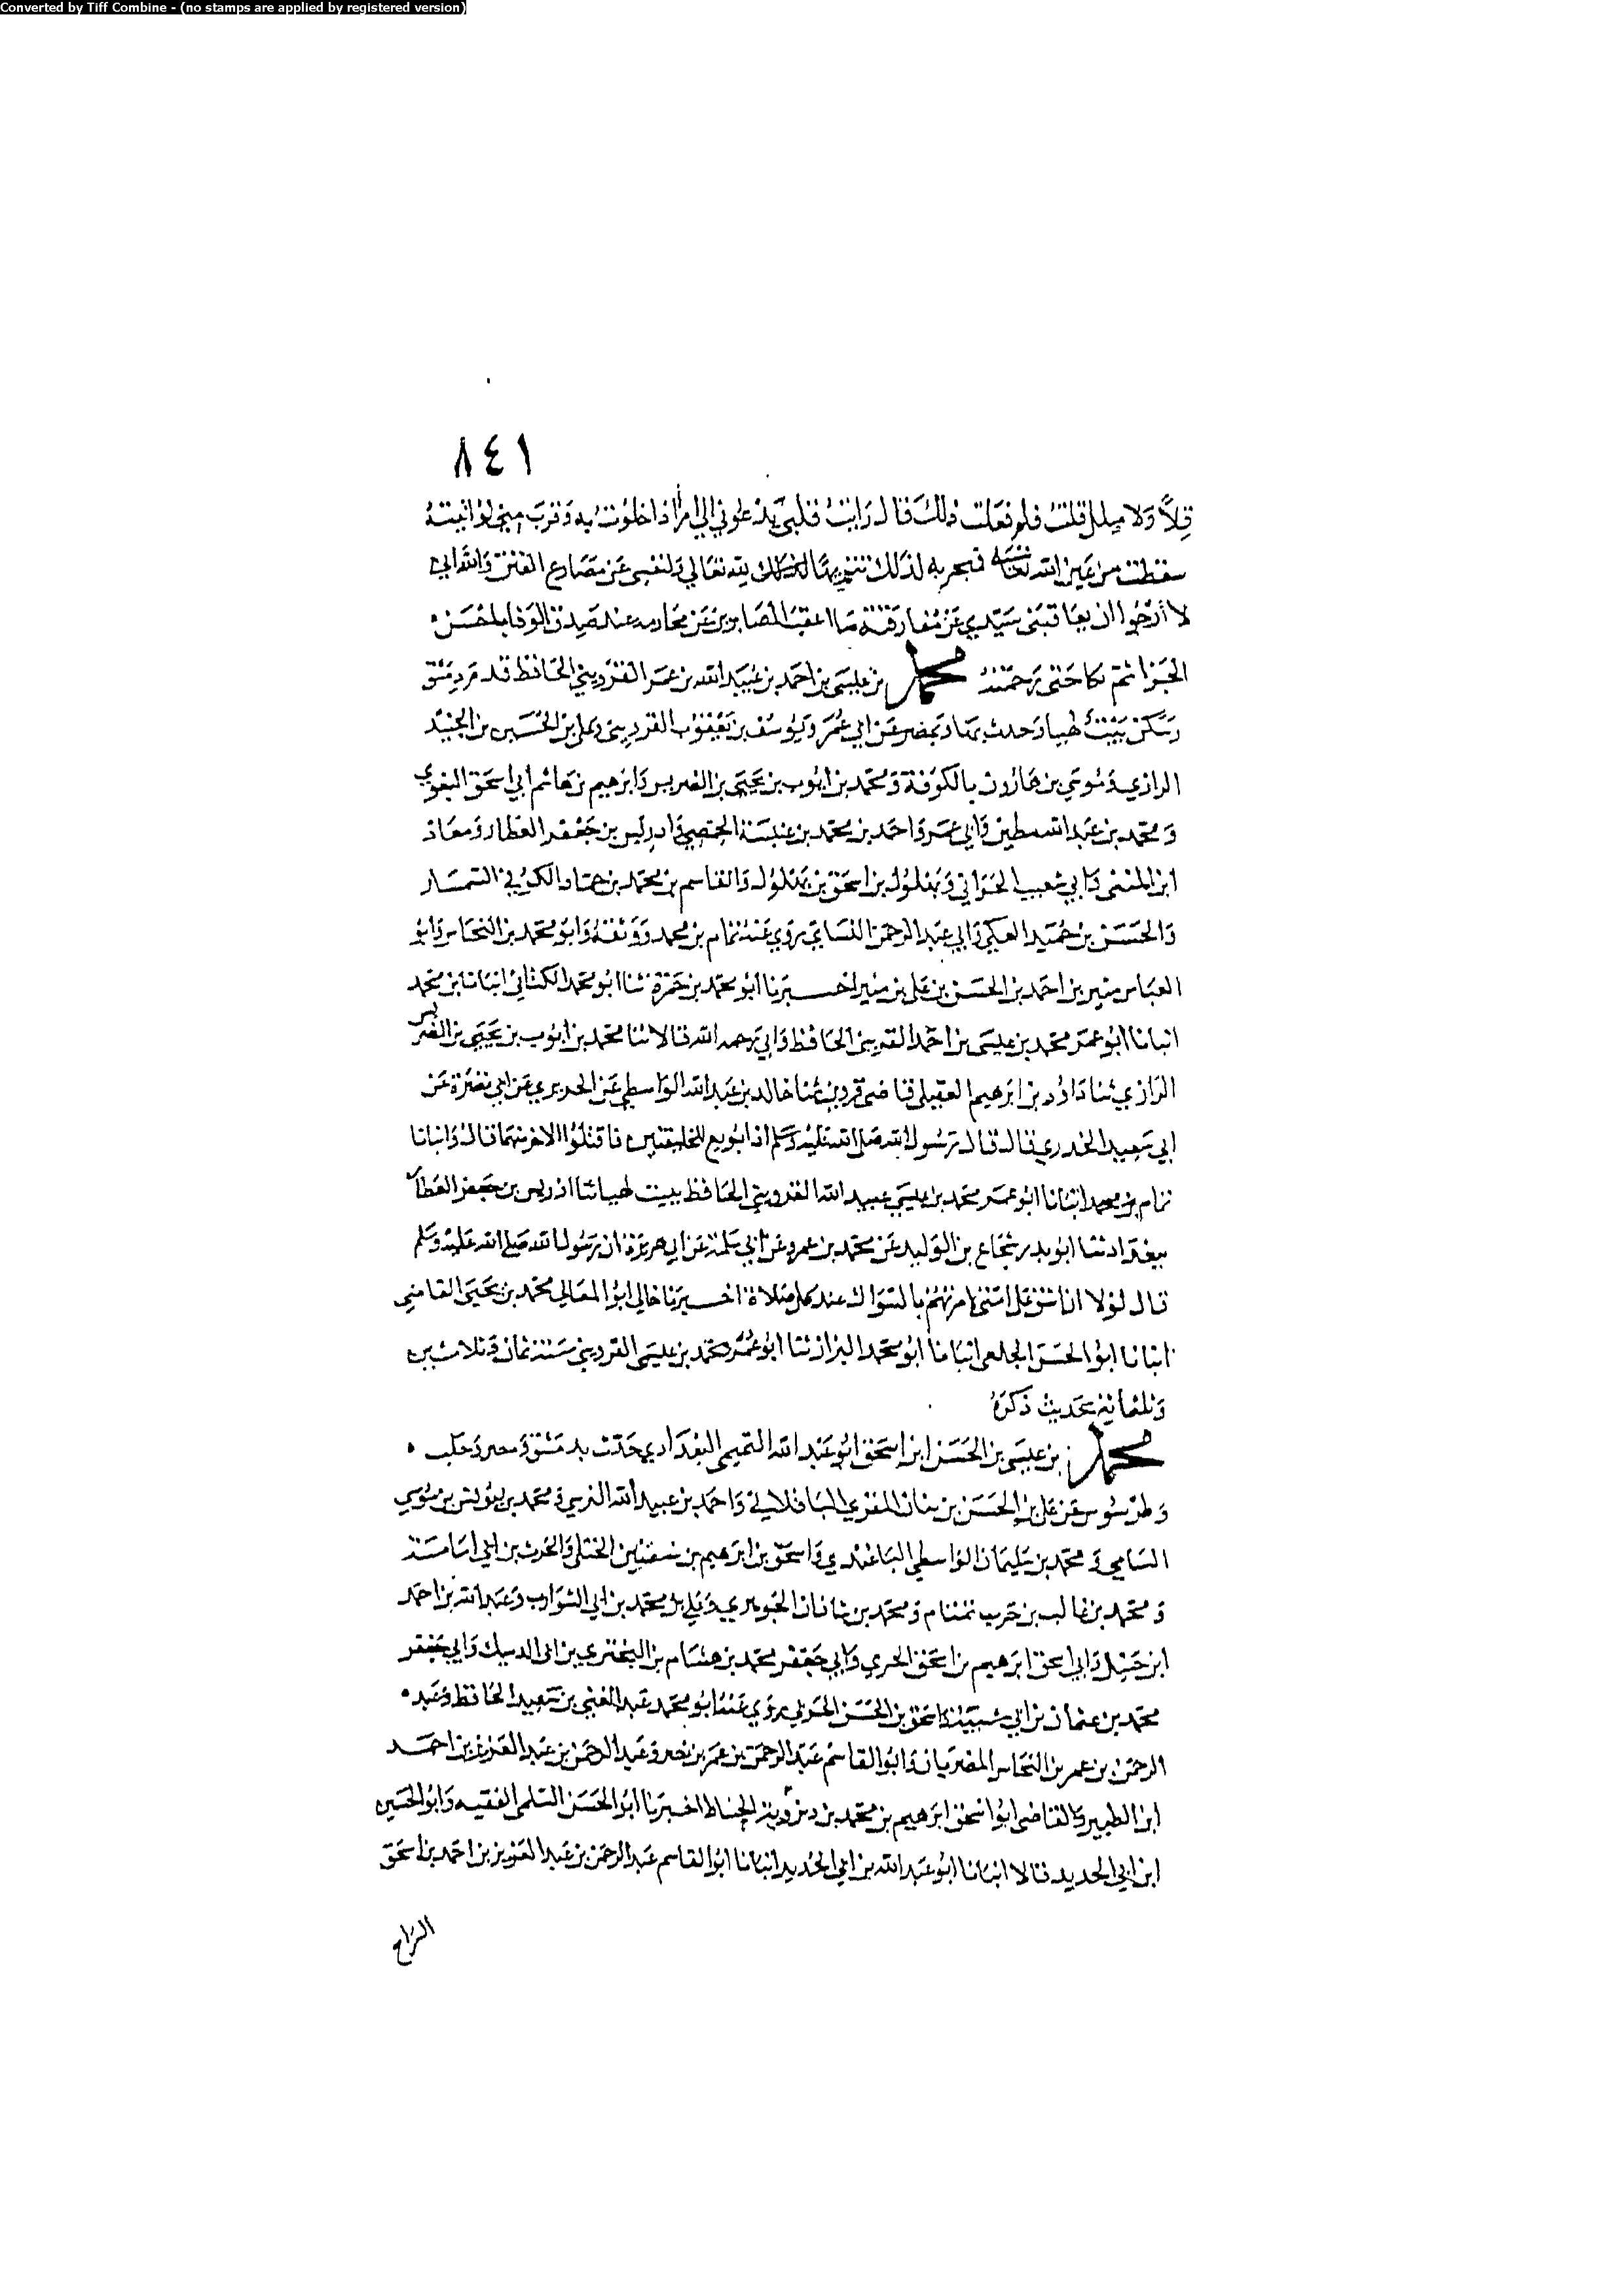 Converted by Tiff Combine - (no stamps are applied by registered version)
٨٤١
قلاً ولا ملل قلت فلم فعلت ذلك قال رايت قلبي يدعوني الي امر اذا خلوت به وقرب مني لو اتيته
سقطت من عين الله تعالى فهجرته لذلك تنزيها لله تعالي ولنفسي عن مصارع الفتن والله اني
لا أرجوا ان يعاقبني سيدي عن مفارقته ما اعقب الصابرين عن محارمه عند صدق الوفا باحسن
الجزا ثم بكا حتى رحمته محمد بن عيسى بن احمد بن عبيد الله بن عمر القزويني الحافظ قدم دمشق
وسكن بيت لهيا وحدث بها وبمصر عن ابي عمر ويوسف بن يعقوب القزويني وعلي بن الحسين بن الجنيد
الرازي وموسي بن هارون بالكوفة ومحمد بن ايوب بن يحيى بن الضريس وابرهيم بن هاشم ابي اسحق البغوي
ومحمد بن عبد الله مطين وابي عمرو احمد بن محمد بن عنبسة الحمصي وادريس بن جعفر العطار ومعاذ
ابن المثنى وابي شعيب الحراني وبهلول بن اسحق بن بهلول والقاسم بن محمد بن حماد الكوفي السمسار
والحسن بن حميد العكي وابي عبد الرحمن النساي روي عنه تمام بن محمد ووثقه وابو محمد بن النحاس وابو
العباس منير بن احمد بن الحسن بن علي بن منير اخبرنا ابو محمد بن حمزة ثنا ابو محمد الكتاني انبانا بن محمد
انبانا ابو عمر محمد بن عيسى بن احمد القزويني الحافظ وابي رحمه الله قالا ثنا محمد بن ايوب بن يحيى بن الضريس
الرازي ثنا داود بن ابرهيم العقيلي قاضي قزوين ثنا خالد بن عبد الله الواسطي عن الجريري عن ابي نضرة عن
ابي سعيد الخدري قال قال رسول الله صلى الله عليه وسلم اذا بويع للخليفتين فاقتلوا الاخر منهما قال وانبانا
تمام بن محمد انبانا ابو عمر محمد بن عيسى عبيد الله القزويني الحافظ ببيت لهيا ثنا ادريس بن جعفر العطار
ببغداد ثنا ابو بدر شجاع بن الوليد عن محمد بن عمرو عن ابي سلمة عن ابي هريرة ان رسول الله صلى الله عليه وسلم
قال لولا ان اشق على امتي لامرتهم بالسواك عند كل صلاة اخبرنا خالي ابو المعالي محمد بن يحيى القاضي
انبانا ابو الحسن الخلعي انبانا ابو محمد البزاز ثنا ابو عمر محمد بن عيسى القزويني سنة ثمان وثلاثين
وثلثماية بحديث ذكره
محمد بن عيسى بن الحسن ابن اسحق ابو عبد الله التميمي البغدادي حدث بدمشق ومصر وحلب
وطرسوس عن علي بن الحسن بن بنان المقري الباقلاني واحمد بن عبيد الله النرسي ومحمد بن يونس بن موسي
السامي ومحمد بن سليمان الواسطي الباغندي واسحق بن ابرهيم بن سنين الختلي والحرث بن ابي اسامة
ومحمد بن غالب بن حرب تمتام ومحمد بن شاذان الجوهري وعلي بن محمد بن ابي الشوارب وعبد الله بن احمد
ابن حنبل وابي اسحق ابرهيم بن اسحق الحربي وابي جعفر محمد بن هشام بن البختري بن ابي الدميك وابي جعفر
محمد بن عثمان بن ابي شيبة واسحق بن الحسن الحربي روي عنه ابو محمد عبد الغني بن سعيد الحافظ وعبد
الرحمن بن عمر بن النحاس المصريان وابو القاسم عبد الرحمن بن عمر بن نصر وعبد الرحمن بن عبد العزيز بن احمد
ابن الطبيز والقاضي ابو اسحق ابرهيم بن محمد بن الجناط اخبرنا ابو الحسن السلمي الفقيه وابو الحسين
ابن ابي الحديد قالا انبانا ابو عبد الله بن ابي الحديد انبانا ابو القاسم عبد الرحمن بن عبد العزيز بن احمد بن اسحق